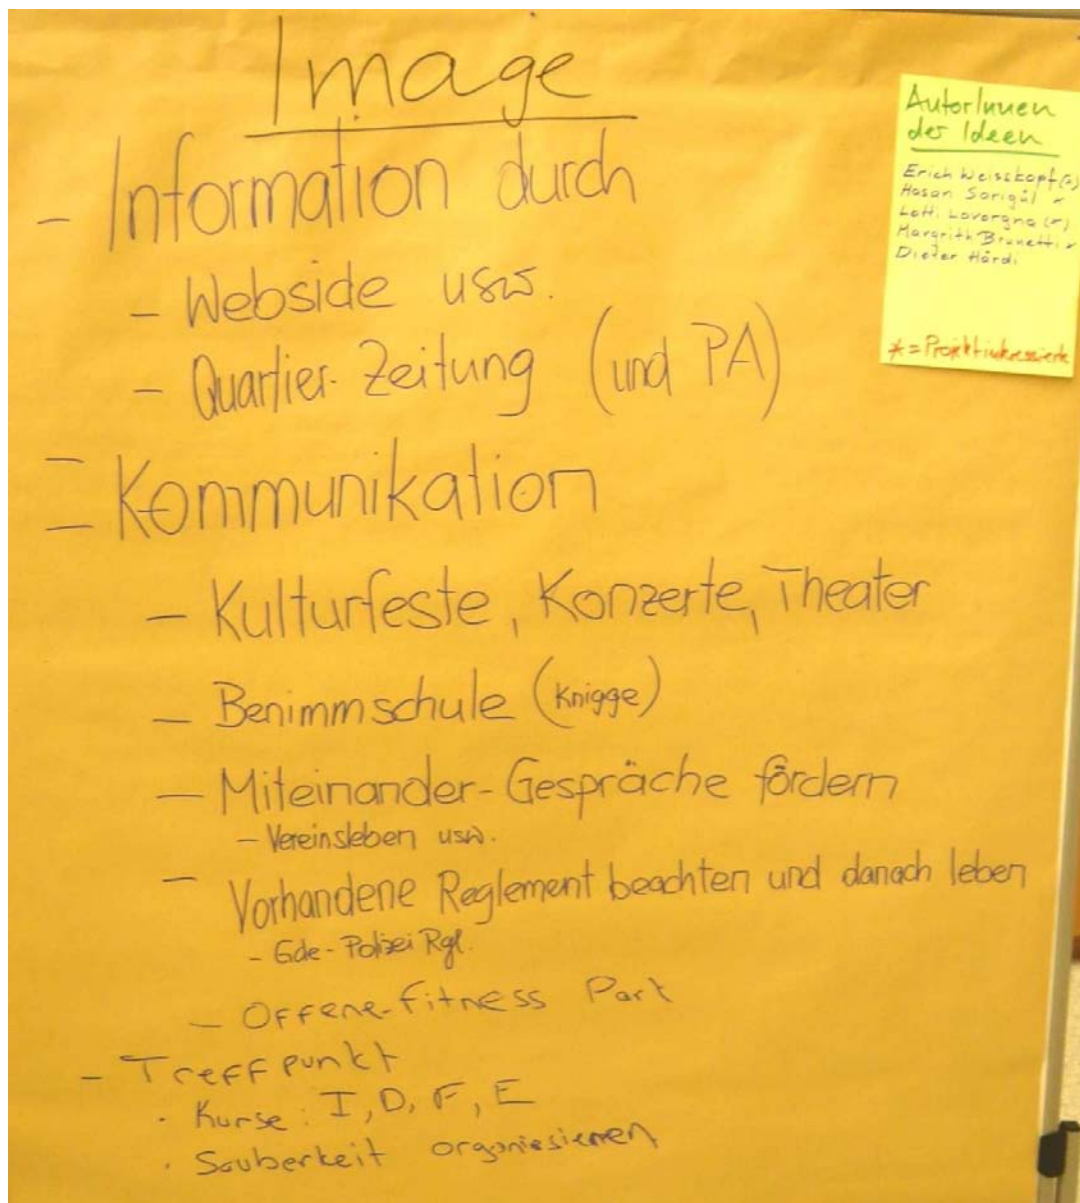 Image
- Information durch
- Webside usw.
- Quartier-Zeitung (und PA)
- Kommunikation
- Kulturfeste, Konzerte, Theater
- Benimmschule (Knigge)
- Miteinander-Gespräche fördern
- Vereinsleben usw.
- Vorhandene Reglement beachten und danach leben
- Gde-Polizei Rgl.
- Offene-Fitness Park
- Treffpunkt
· Kurse: I, D, F, E
· Sauberkeit organiesieren
AutorInnen
der Ideen
Erich Weisskopf
Hasan Sarigül
Lotti Lavorgna
Margrith Brunetti
Dieter Härdi
* = Projektinteressierte